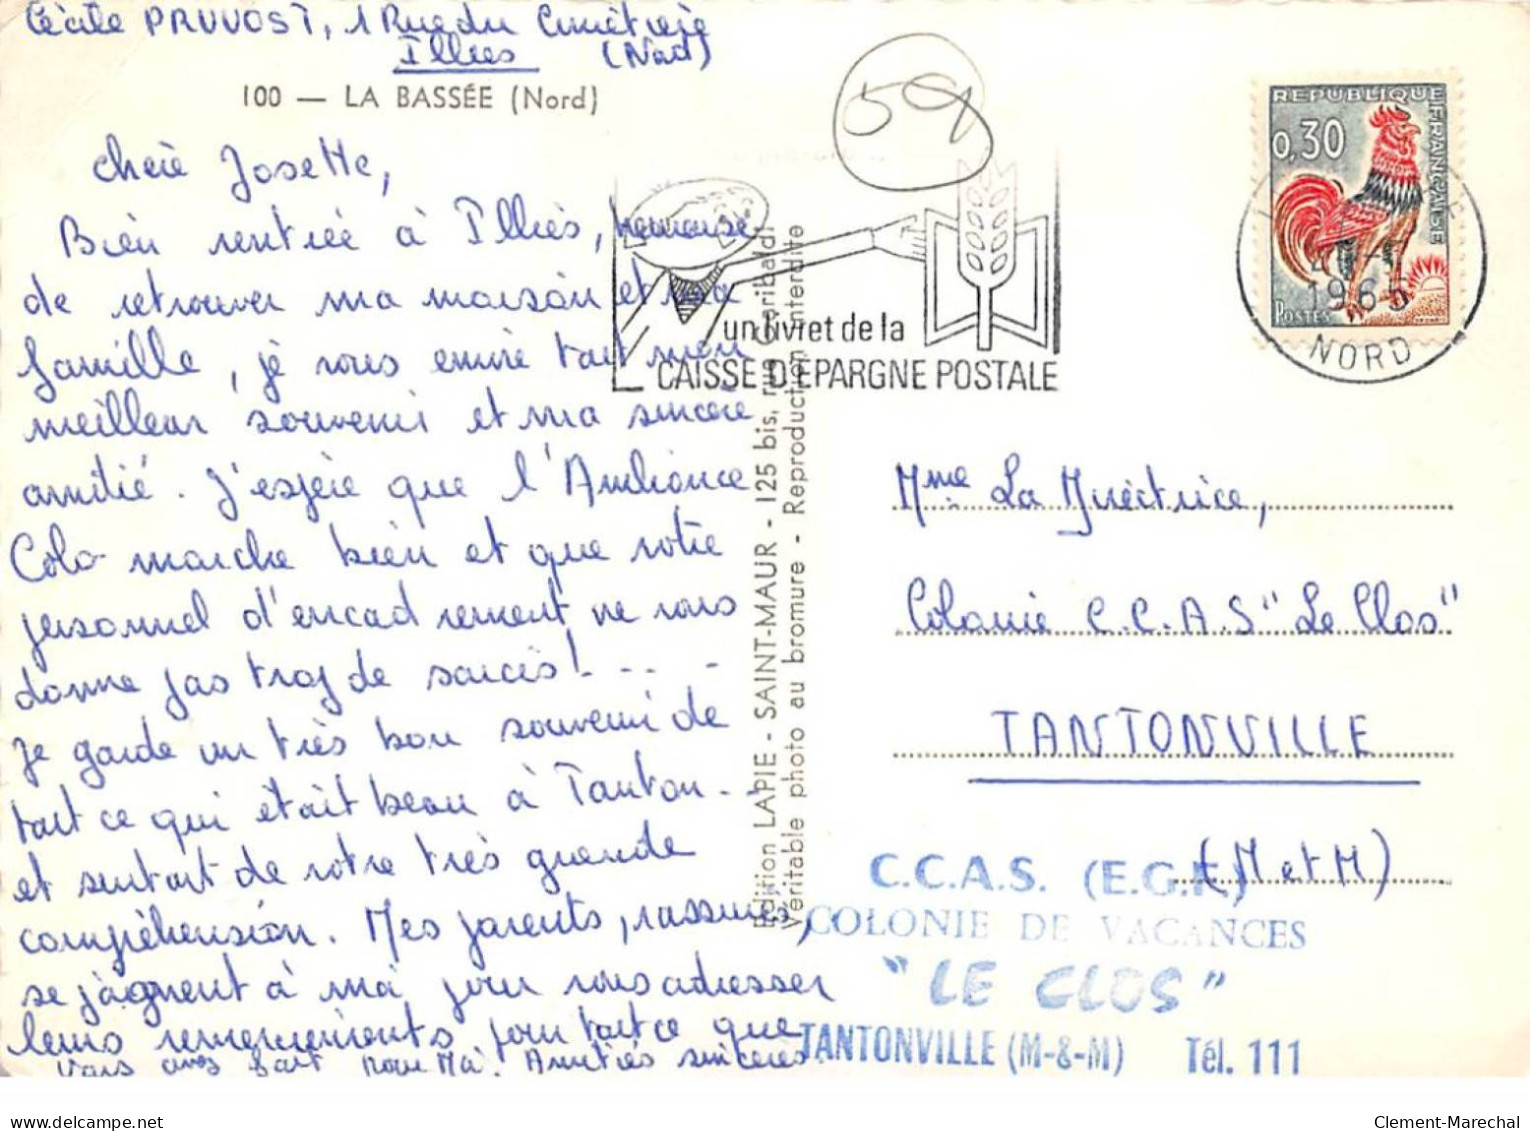 Cécile PRUVOST, 1 Rue du Cimetière
Illies (Nord)
100 — LA BASSÉE (Nord)
Chère Josette,
Bien rentrée à Illies, heureuse
de retrouver ma maison et ma
famille, je vous envoie tout mon
meilleur souvenir et ma sincère
amitié. J'espère que l'Ambiance
Colo marche bien et que votre
personnel d'encadrement ne vous
donne pas trop de soucis! - - -
Je garde un très bon souvenir de
tout ce qui était beau à Tanton..
et surtout de votre très grande
compréhension. Mes parents, rassurés,
se joignent à moi pour vous adresser
leurs remerciements pour tout ce que
vous avez fait pour moi. Amitiés sincères.
Edition LAPIE - SAINT-MAUR - 125 bis, rue Garibaldi
Véritable photo au bromure - Reproduction interdite
59
un livret de la
CAISSE D'EPARGNE POSTALE
REPUBLIQUE FRANÇAISE
0,30
POSTES
1965
NORD
Mme La Directrice,
Colonie C.C.A.S "Le Clos"
TANTONVILLE
(M et M)
C.C.A.S. (E.G.F.)
COLONIE DE VACANCES
"LE CLOS"
TANTONVILLE (M-&-M) Tél. 111
Clement-Marechal